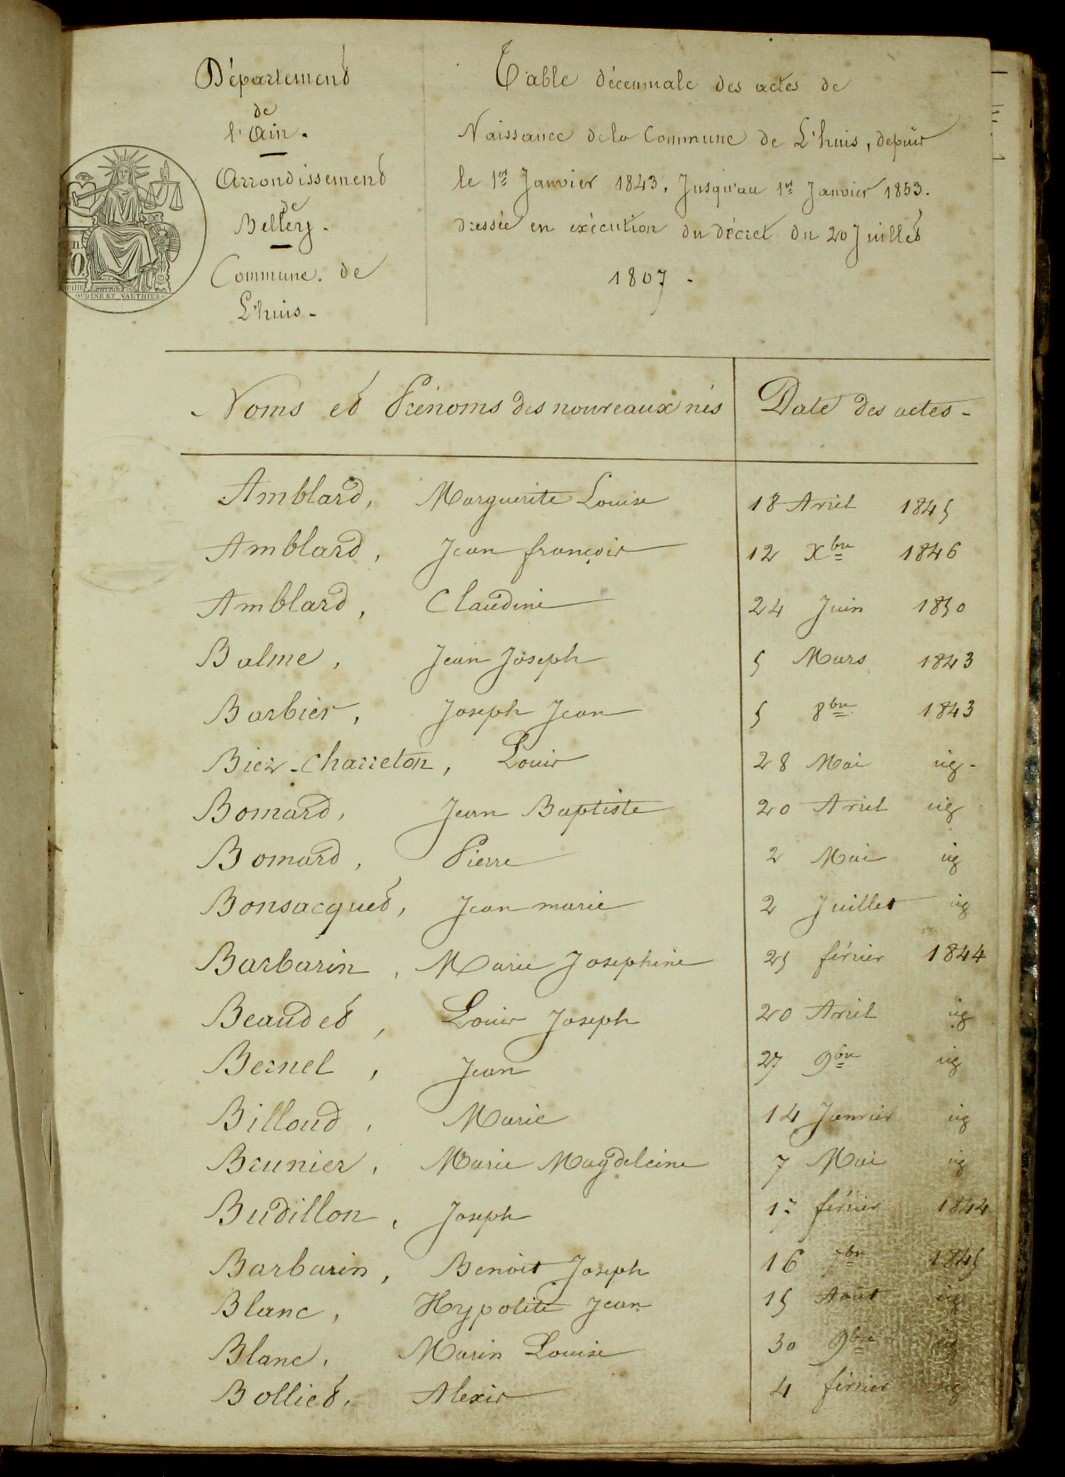 Département
de
l'Ain.
Arrondissement
de
Belley.
Commune. de
L'huis.
Table décennale des actes de
Naissance de la Commune de L'huis, depuis
le 1er Janvier 1843, Jusqu'au 1er Janvier 1853.
dressée en exécution du décret du 20 Juillet
1807.
Noms et Prénoms des nouveaux nés Date des actes.
Amblard, Marguerite Louise 18 Avril 1845
Amblard, Jean françois 12 Xbre 1846
Amblard, Claudine 24 Juin 1850
Balme, Jean Joseph 5 Mars 1843
Barbier, Joseph Jean 5 8bre 1843
Biez-Charreton, Louis 28 Mai id.
Bomard, Jean Baptiste 20 Avril id
Bomard, Pierre 2 Mai id
Bonsacquet, Jean marie 2 Juillet id
Barbarin, Marie Josephine 25 février 1844
Beaudet, Louis Joseph 20 Avril id
Bernel, Jean 27 9bre id
Billoud, Marie 14 Janvier id
Brunier, Marie Magdeleine 7 Mai id
Budillon, Joseph 17 février 1844
Barbarin, Benoit Joseph 16 7bre 1845
Blanc, Hypolite Jean 15 Aout id
Blanc, Marin Louise 30 9bre id
Bolliet, Alexis 4 février id